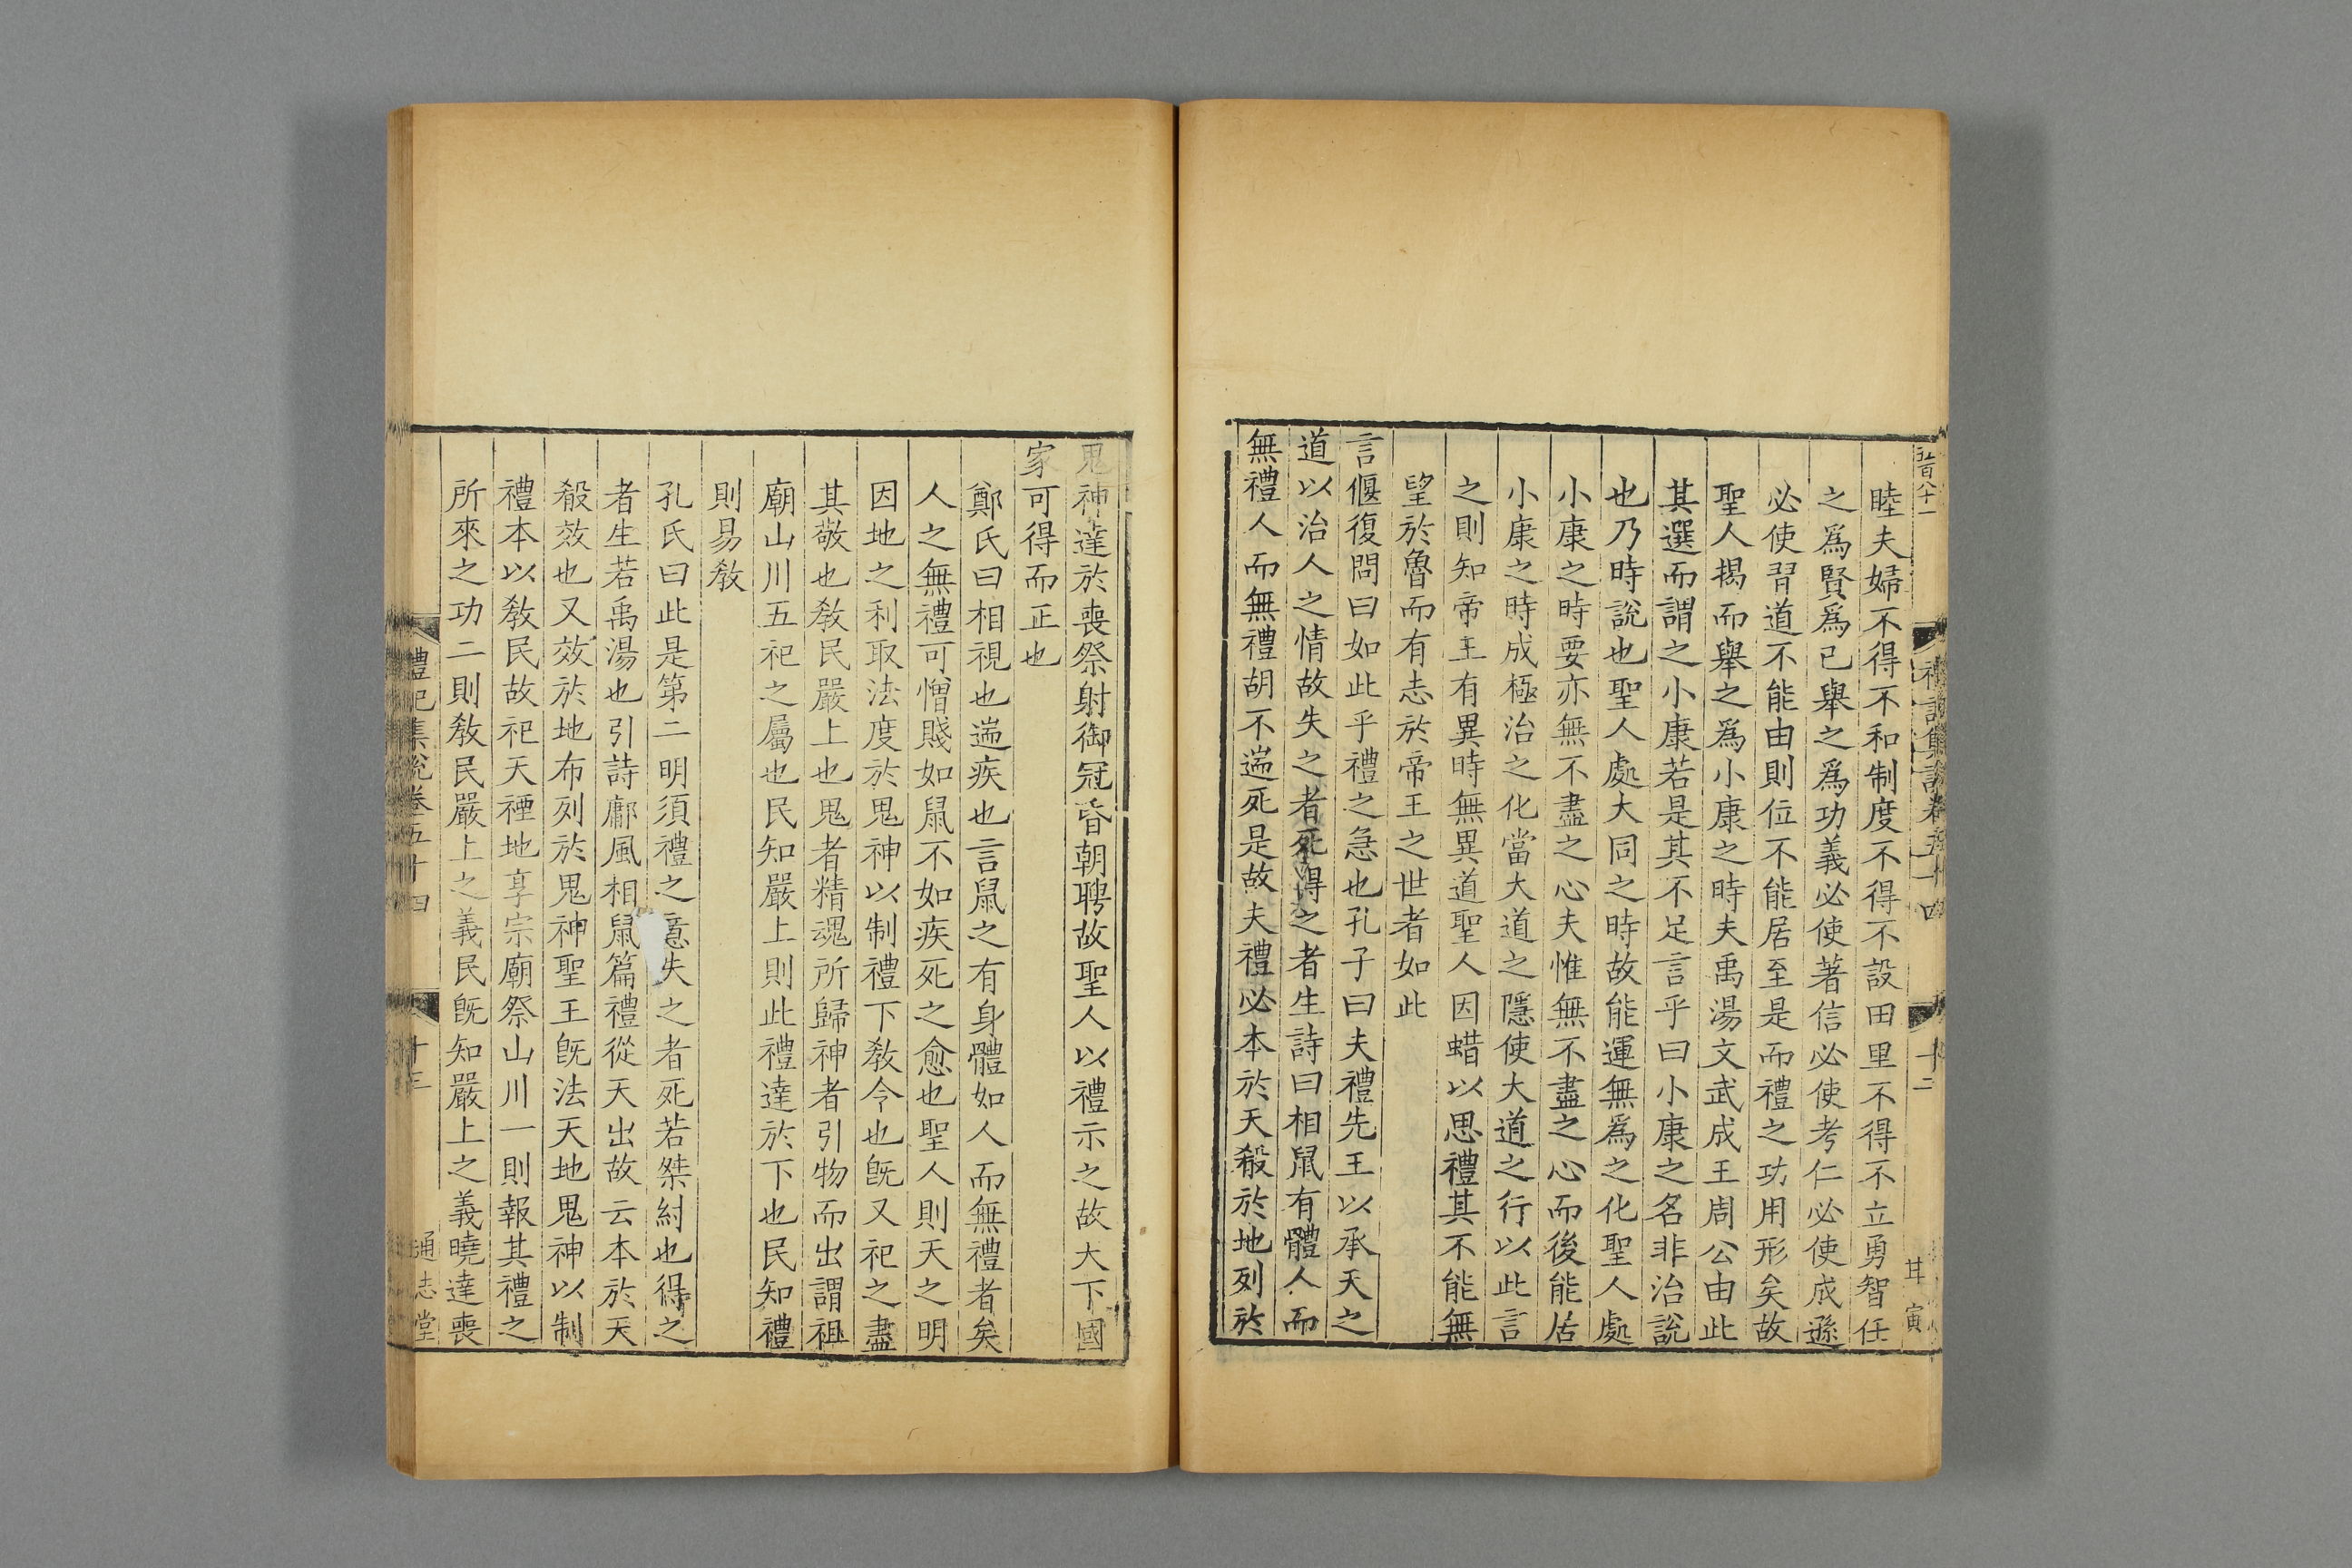 睦夫婦不得不和制度不得不設田里不得不立勇智任
之爲賢爲己舉之爲功義必使著信必使考仁必使成遜
必使肎道不能由則位不能居至是而禮之功用形矣故
聖人揭而舉之爲小康之時夫禹湯文武成王周公由此
其選而謂之小康若是其不足言乎曰小康之名非治說
也乃時說也聖人處大同之時故能運無爲之化聖人處
小康之時要亦無不盡之心夫惟無不盡之心而後能居
小康之時成極治之化當大道之隱使大道之行以此言
之則知帝王有異時無異道聖人因蜡以思禮其不能無
望於魯而有志於帝王之世者如此
言偃復問曰如此乎禮之急也孔子曰夫禮先王以承天之
道以治人之情故失之者死得之者生詩曰相鼠有體人而
無禮人而無禮胡不遄死是故夫禮必本於天殽於地列於
鬼神達於喪祭射御冠昏朝聘故聖人以禮示之故天下國
家可得而正也
鄭氏曰相視也遄疾也言鼠之有身體如人而無禮者矣
人之無禮可憎賤如鼠不如疾死之愈也聖人則天之明
因地之利取法度於鬼神以制禮下敎令也旣又祀之盡
其敬也敎民嚴上也鬼者精魂所歸神者引物而出謂祖
廟山川五祀之屬也民知嚴上則此禮達於下也民知禮
則易敎
孔氏曰此是第二明須禮之意失之者死若桀紂也得之
者生若禹湯也引詩鄘風相鼠篇禮從天出故云本於天
殽效也又效於地布列於鬼神聖王旣法天地鬼神以制
禮本以敎民故祀天禋地享宗廟祭山川一則報其禮之
所來之功二則敎民嚴上之義民旣知嚴上之義曉達喪
禮記集說卷五十四
十三
通志堂